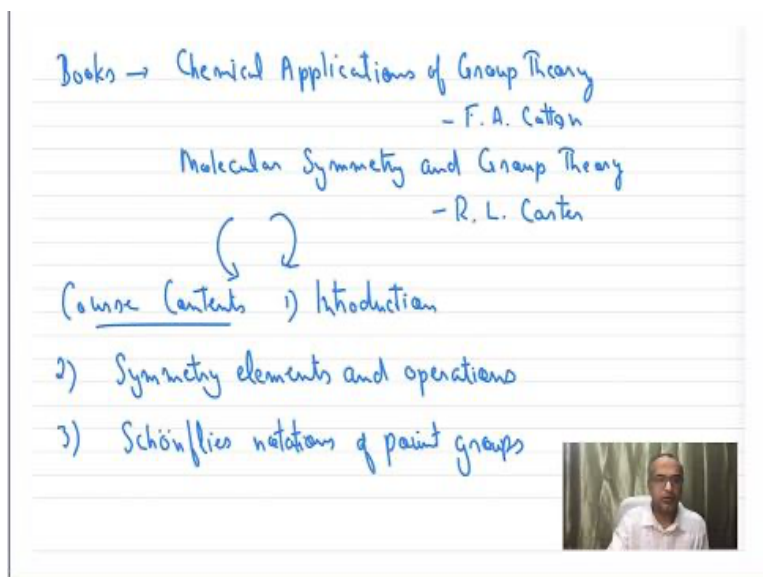 Books → Chemical Applications of Group Theory
- F. A. Cotton
Molecular Symmetry and Group Theory
- R. L. Carter
Course Contents 1) Introduction
2) Symmetry elements and operations
3) Schönflies notations of point groups